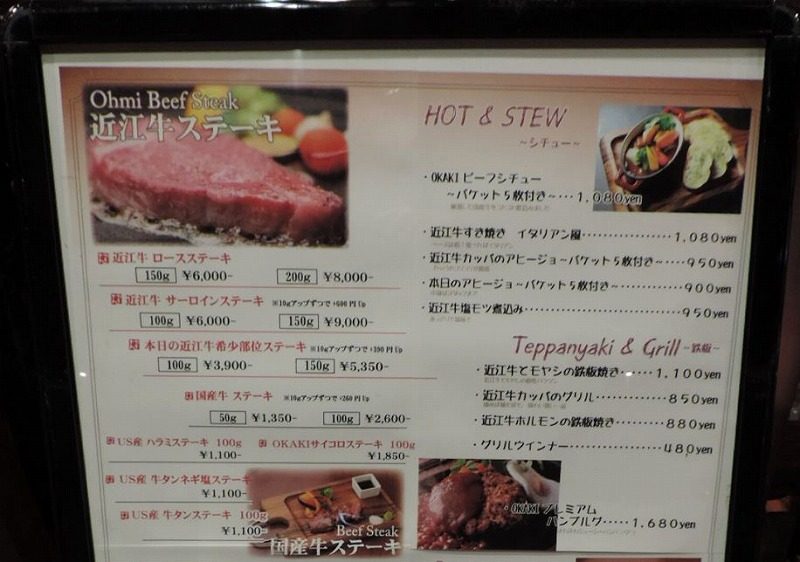 Ohmi Beef Steak
近江牛ステーキ
近江牛 ロースステーキ
150g ¥6,000- 200g ¥8,000-
近江牛 サーロインステーキ ※10gアップずつで+600円Up
100g ¥6,000- 150g ¥9,000-
本日の近江牛希少部位ステーキ ※10gアップずつで+390円Up
100g ¥3,900- 150g ¥5,350-
国産牛 ステーキ ※10gアップずつで+260円Up
50g ¥1,350- 100g ¥2,600-
US産 ハラミステーキ 100g
¥1,100-
OKAKIサイコロステーキ 100g
¥1,850-
US産 牛タンネギ塩ステーキ
¥1,100-
US産 牛タンステーキ 100g
¥1,100-
Beef Steak
国産牛ステーキ
HOT & STEW
～シチュー～
・OKAKI ビーフシチュー
～バケット5枚付き～・・・1,080yen
・近江牛すき焼き イタリアン風・・・・・・・・・・・・・・・・1,080yen
・近江牛カッパのアヒージョ～バケット5枚付き～・・・950yen
・本日のアヒージョ～バケット5枚付き～・・・・・・・・900yen
・近江牛塩モツ煮込み・・・・・・・・・・・・・・・・・・・・・950yen
Teppanyaki & Grill ～鉄板～
・近江牛とモヤシの鉄板焼き・・・・1,100yen
・近江牛カッパのグリル・・・・・・・・850yen
・近江牛ホルモンの鉄板焼き・・・・・880yen
・グリルウインナー・・・・・・・・・・・480yen
・OKAKIプレミアム
ハンブルグ・・・・・1,680yen